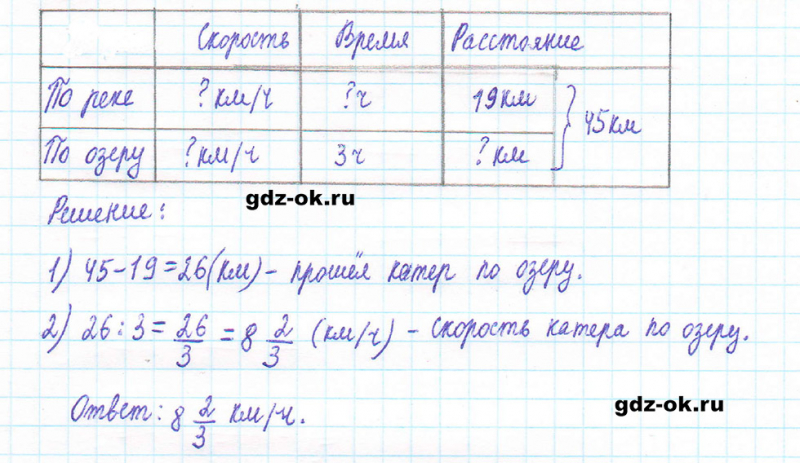 Скорость Время Расстояние
По реке ? км/ч ? ч 19 км
45 км
По озеру ? км/ч 3 ч ? км
gdz-ok.ru
Решение:
1) 45-19=26(км)- прошёл катер по озеру.
2) 26:3= 26/3 = 8 2/3 (км/ч) - скорость катера по озеру.
Ответ: 8 2/3 км/ч.
gdz-ok.ru